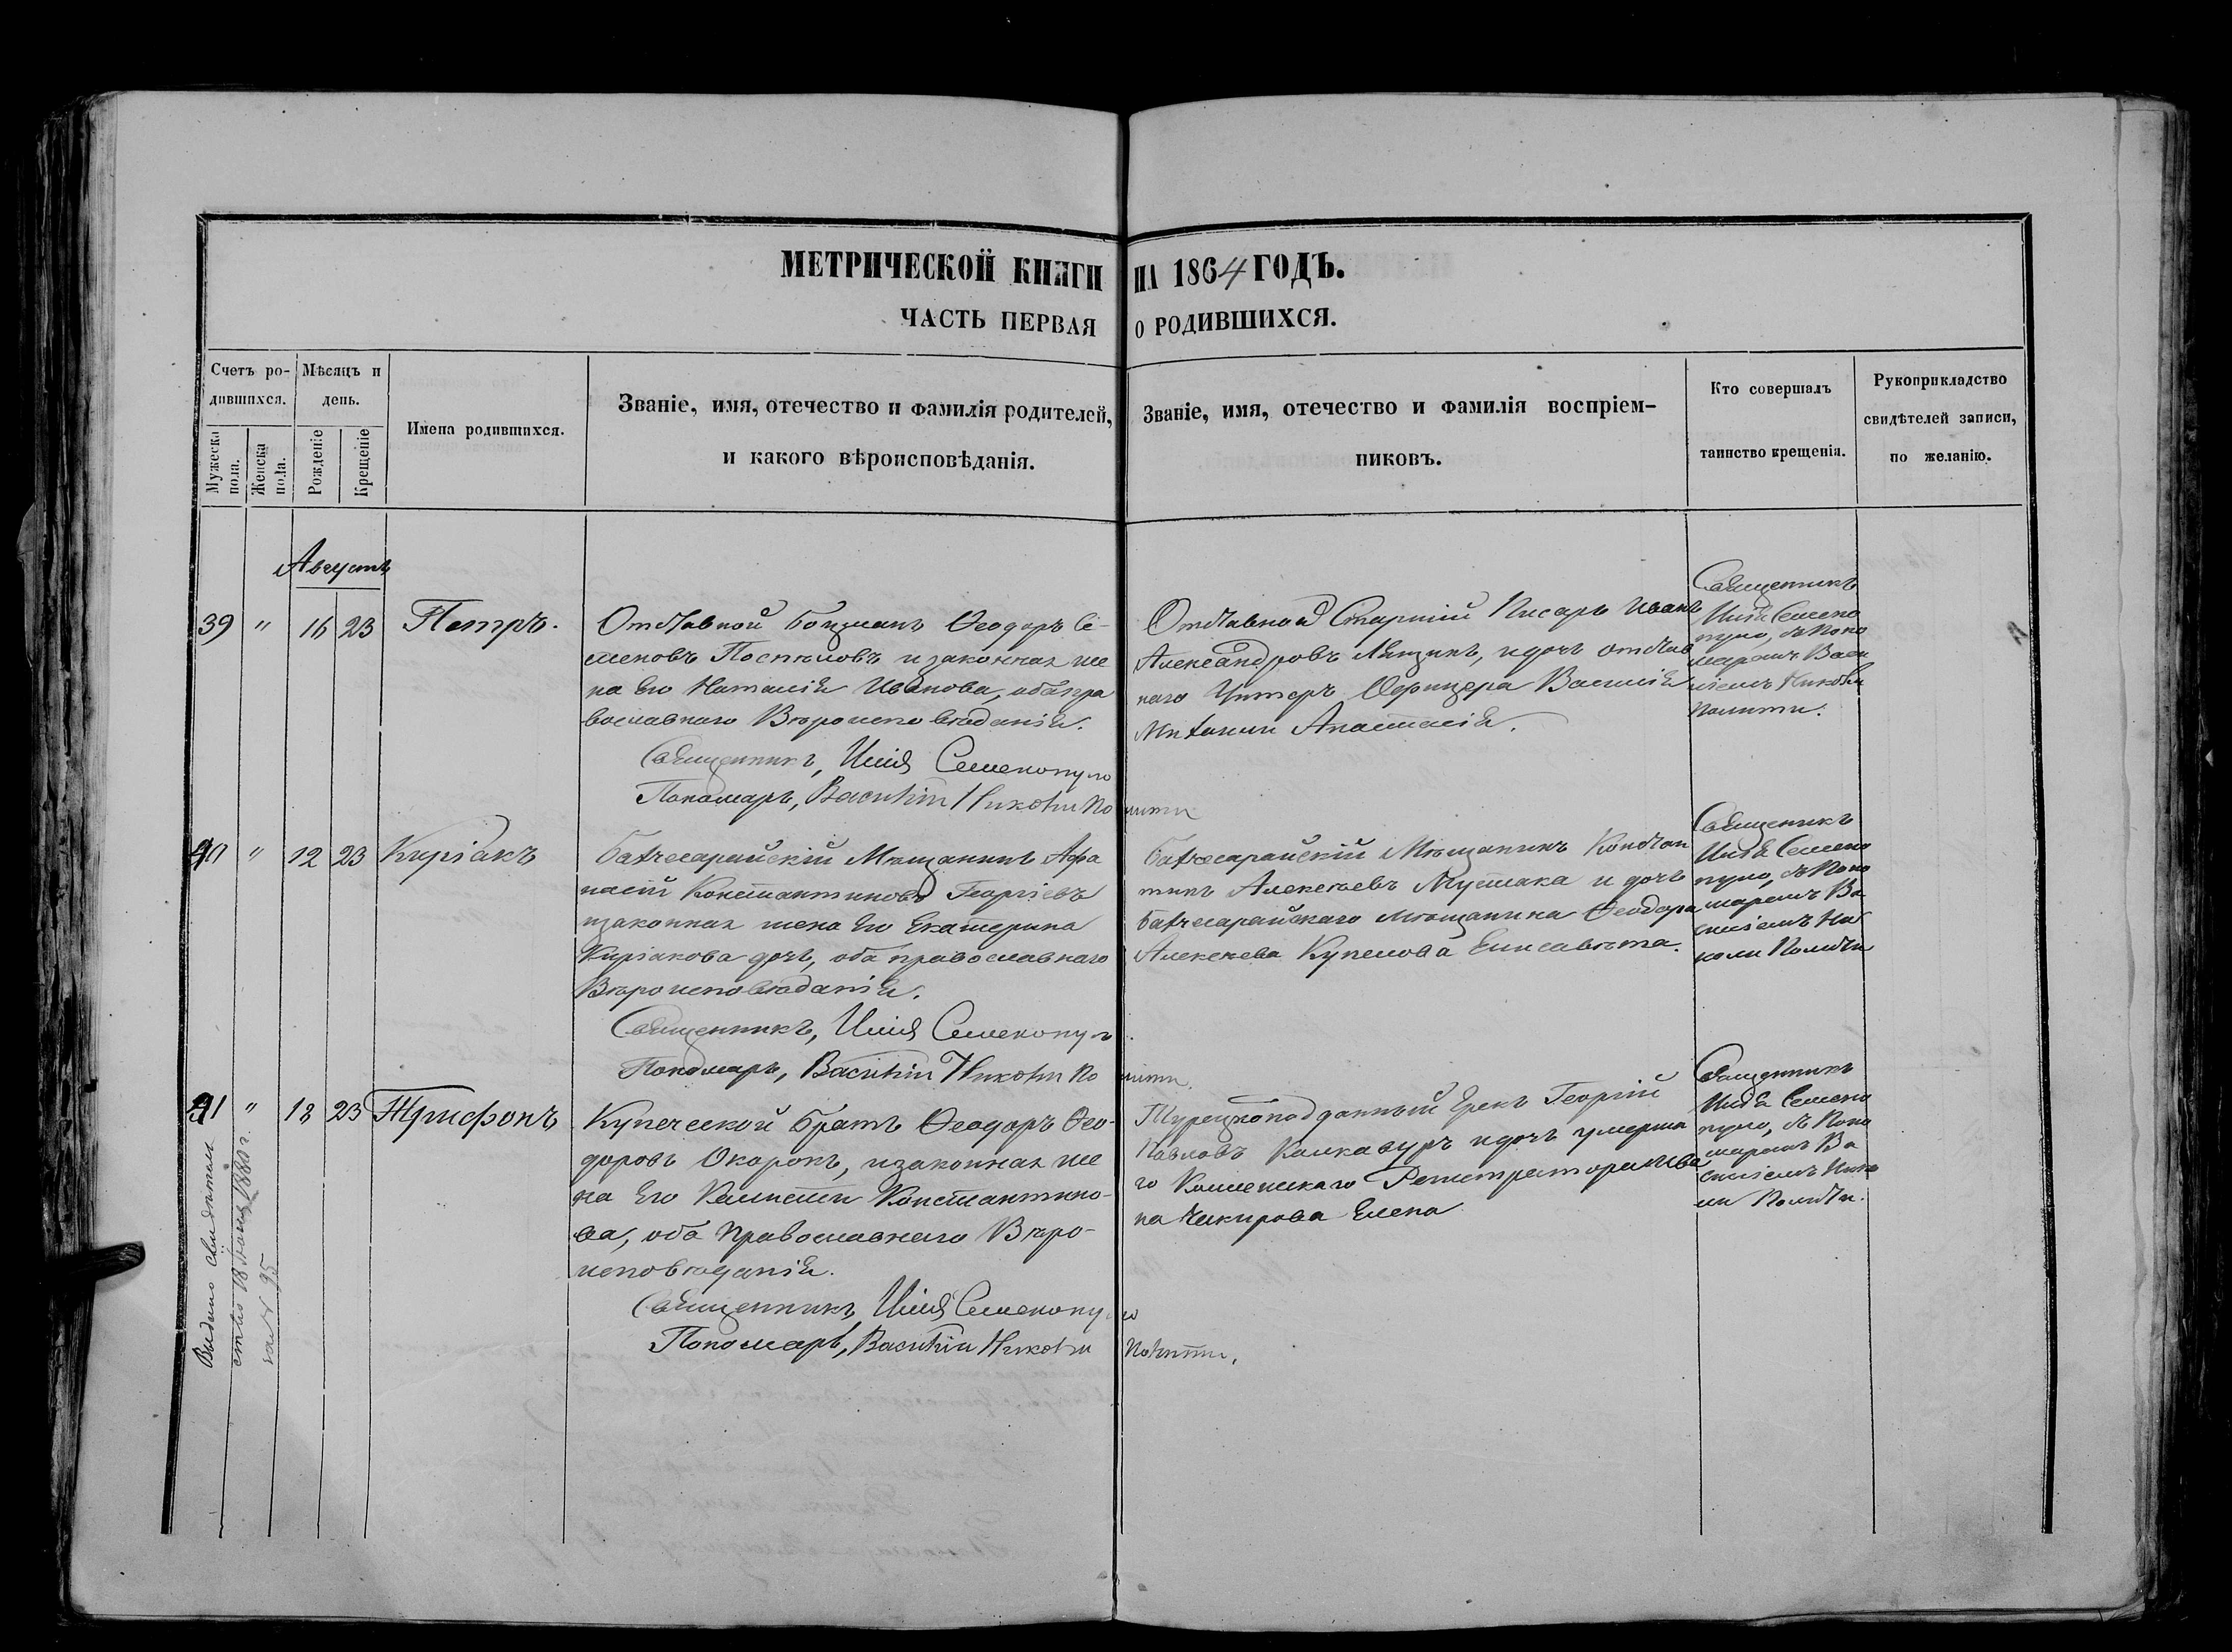 МЕТРИЧЕСКОЙ КНИГИ НА 1864 ГОДЪ.
ЧАСТЬ ПЕРВАЯ О РОДИВШИХСЯ.
Счетъ ро-
дившихся.
Мужеска
пола.
Женска
пола.
Мѣсяцъ и
день.
Рожденіе
Крещеніе
Имена родившихся.
Званіе, имя, отечество и фамилія родителей,
и какого вѣроисповѣданія.
Званіе, имя, отечество и фамилія воспріем-
никовъ.
Кто совершалъ
таинство крещенія.
Рукоприкладство
свидѣтелей записи,
по желанію.
Августъ
39 " 16 23 Петръ.
Отставной Боцманъ Ѳеодоръ Се-
меновъ Поспѣловъ и законная же
на Его Наталія Иванова, оба пра
вославнаго Вѣроисповѣданія.
Священникъ, Илія Семенопуло
Пономарь, Василій Николи Полити
Отставной Старшій Писарь Иванъ
Александровъ и дочь отстав
наго Унтеръ Офицера Василія
Анастасія.
Священникъ
Илія Семено
пуло, съ Поно
маремъ Васи
ліемъ Николи
Полити.
40 " 12 23 Киріакъ
Бахчесарайскій Мѣщанинъ Афа
насій Константиновъ Георгіевъ
изаконная жена Его Екатерина
Киріакова дочь, оба православнаго
Вѣроисповѣданія.
Священникъ, Илія Семенопуло
Пономарь, Василій Николи Политти.
Бахчесарайскій Мѣщанинъ Констан
тинъ Алексѣевъ и дочь
Бахчесарайскаго Мѣщанина Ѳеодора
Алексѣева Елисавета.
Священникъ
Илія Семено
пуло, съ Поно
маремъ Ва
силіемъ Ни
коли Полити
41 " 13 23 Трифонъ
Купеческой братъ Ѳеодоръ Ѳео-
доровъ Окорокъ, изаконная же
на Его Константино-
ва, оба Православнаго Вѣро-
исповѣданія.
Священникъ, Илія Семенопуло
Пономарь, Василій Николи Политти.
Турецкоподданный Грекъ Георгій
Павловъ и дочь умерша
го Коллежскаго Регистратора Ива
на Чакирова Елена
Священникъ
Илія Семено
пуло, съ Поно
маремъ Ва
силіемъ Нико
ли Полити.
Выдано свидѣтель
ство 18 1880 г.
за № 95